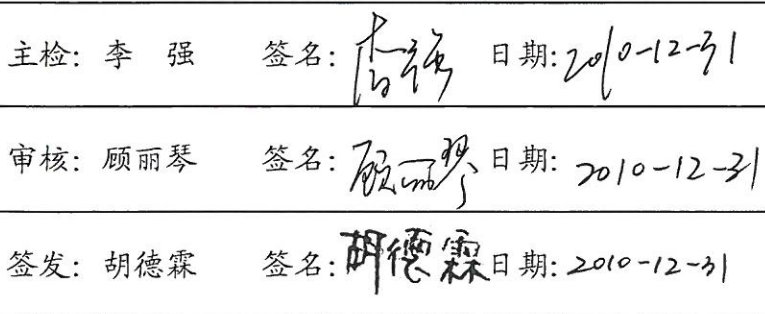 主检: 李 强 签名: 李强 日期: 2010-12-31
审核: 顾丽琴 签名: 顾丽琴 日期: 2010-12-31
签发: 胡德霖 签名: 胡德霖 日期: 2010-12-31